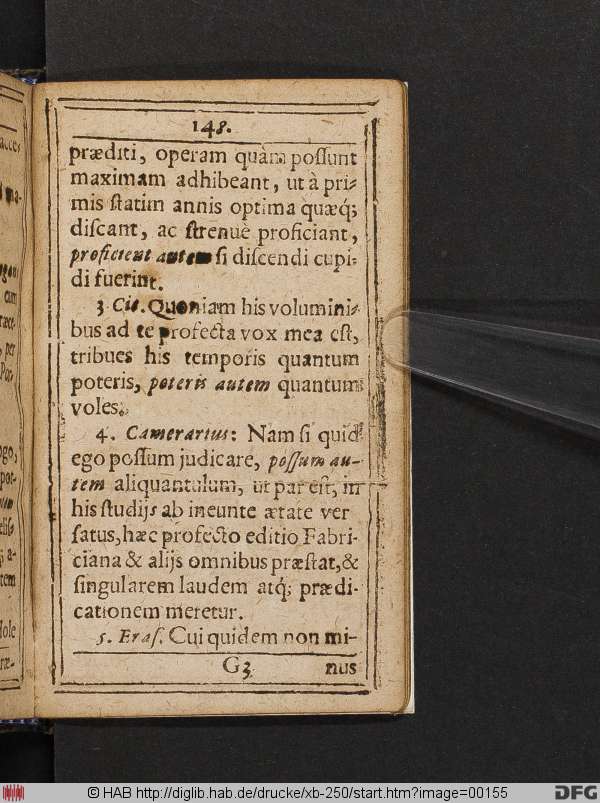 148.
præditi, operam quàm poſſunt
maximam adhibeant, ut à pri⸗
mis ſtatim annis optima quæq́;
diſcant, ac ſtrenuè proficiant,
proficient autem ſi diſcendi cupi⸗
di fuerint.
3 Cic. Quoniam his volumini⸗
bus ad te profecta vox mea eſt,
tribues his temporis quantum
poteris, poteris autem quantum
voles.
4. Camerarius: Nam ſi quid
ego poſſum judicare, poſſum au-
tem aliquantulum, ut par eſt, in
his ſtudijs ab ineunte ætate ver
ſatus, hæc profecto editio Fabri-
ciana & alijs omnibus præſtat, &
ſingularem laudem atq́; prædi-
cationem meretur.
5. Eraſ. Cui quidem non mi-
G3 nus
© HAB http://diglib.hab.de/drucke/xb-250/start.htm?image=00155
DFG